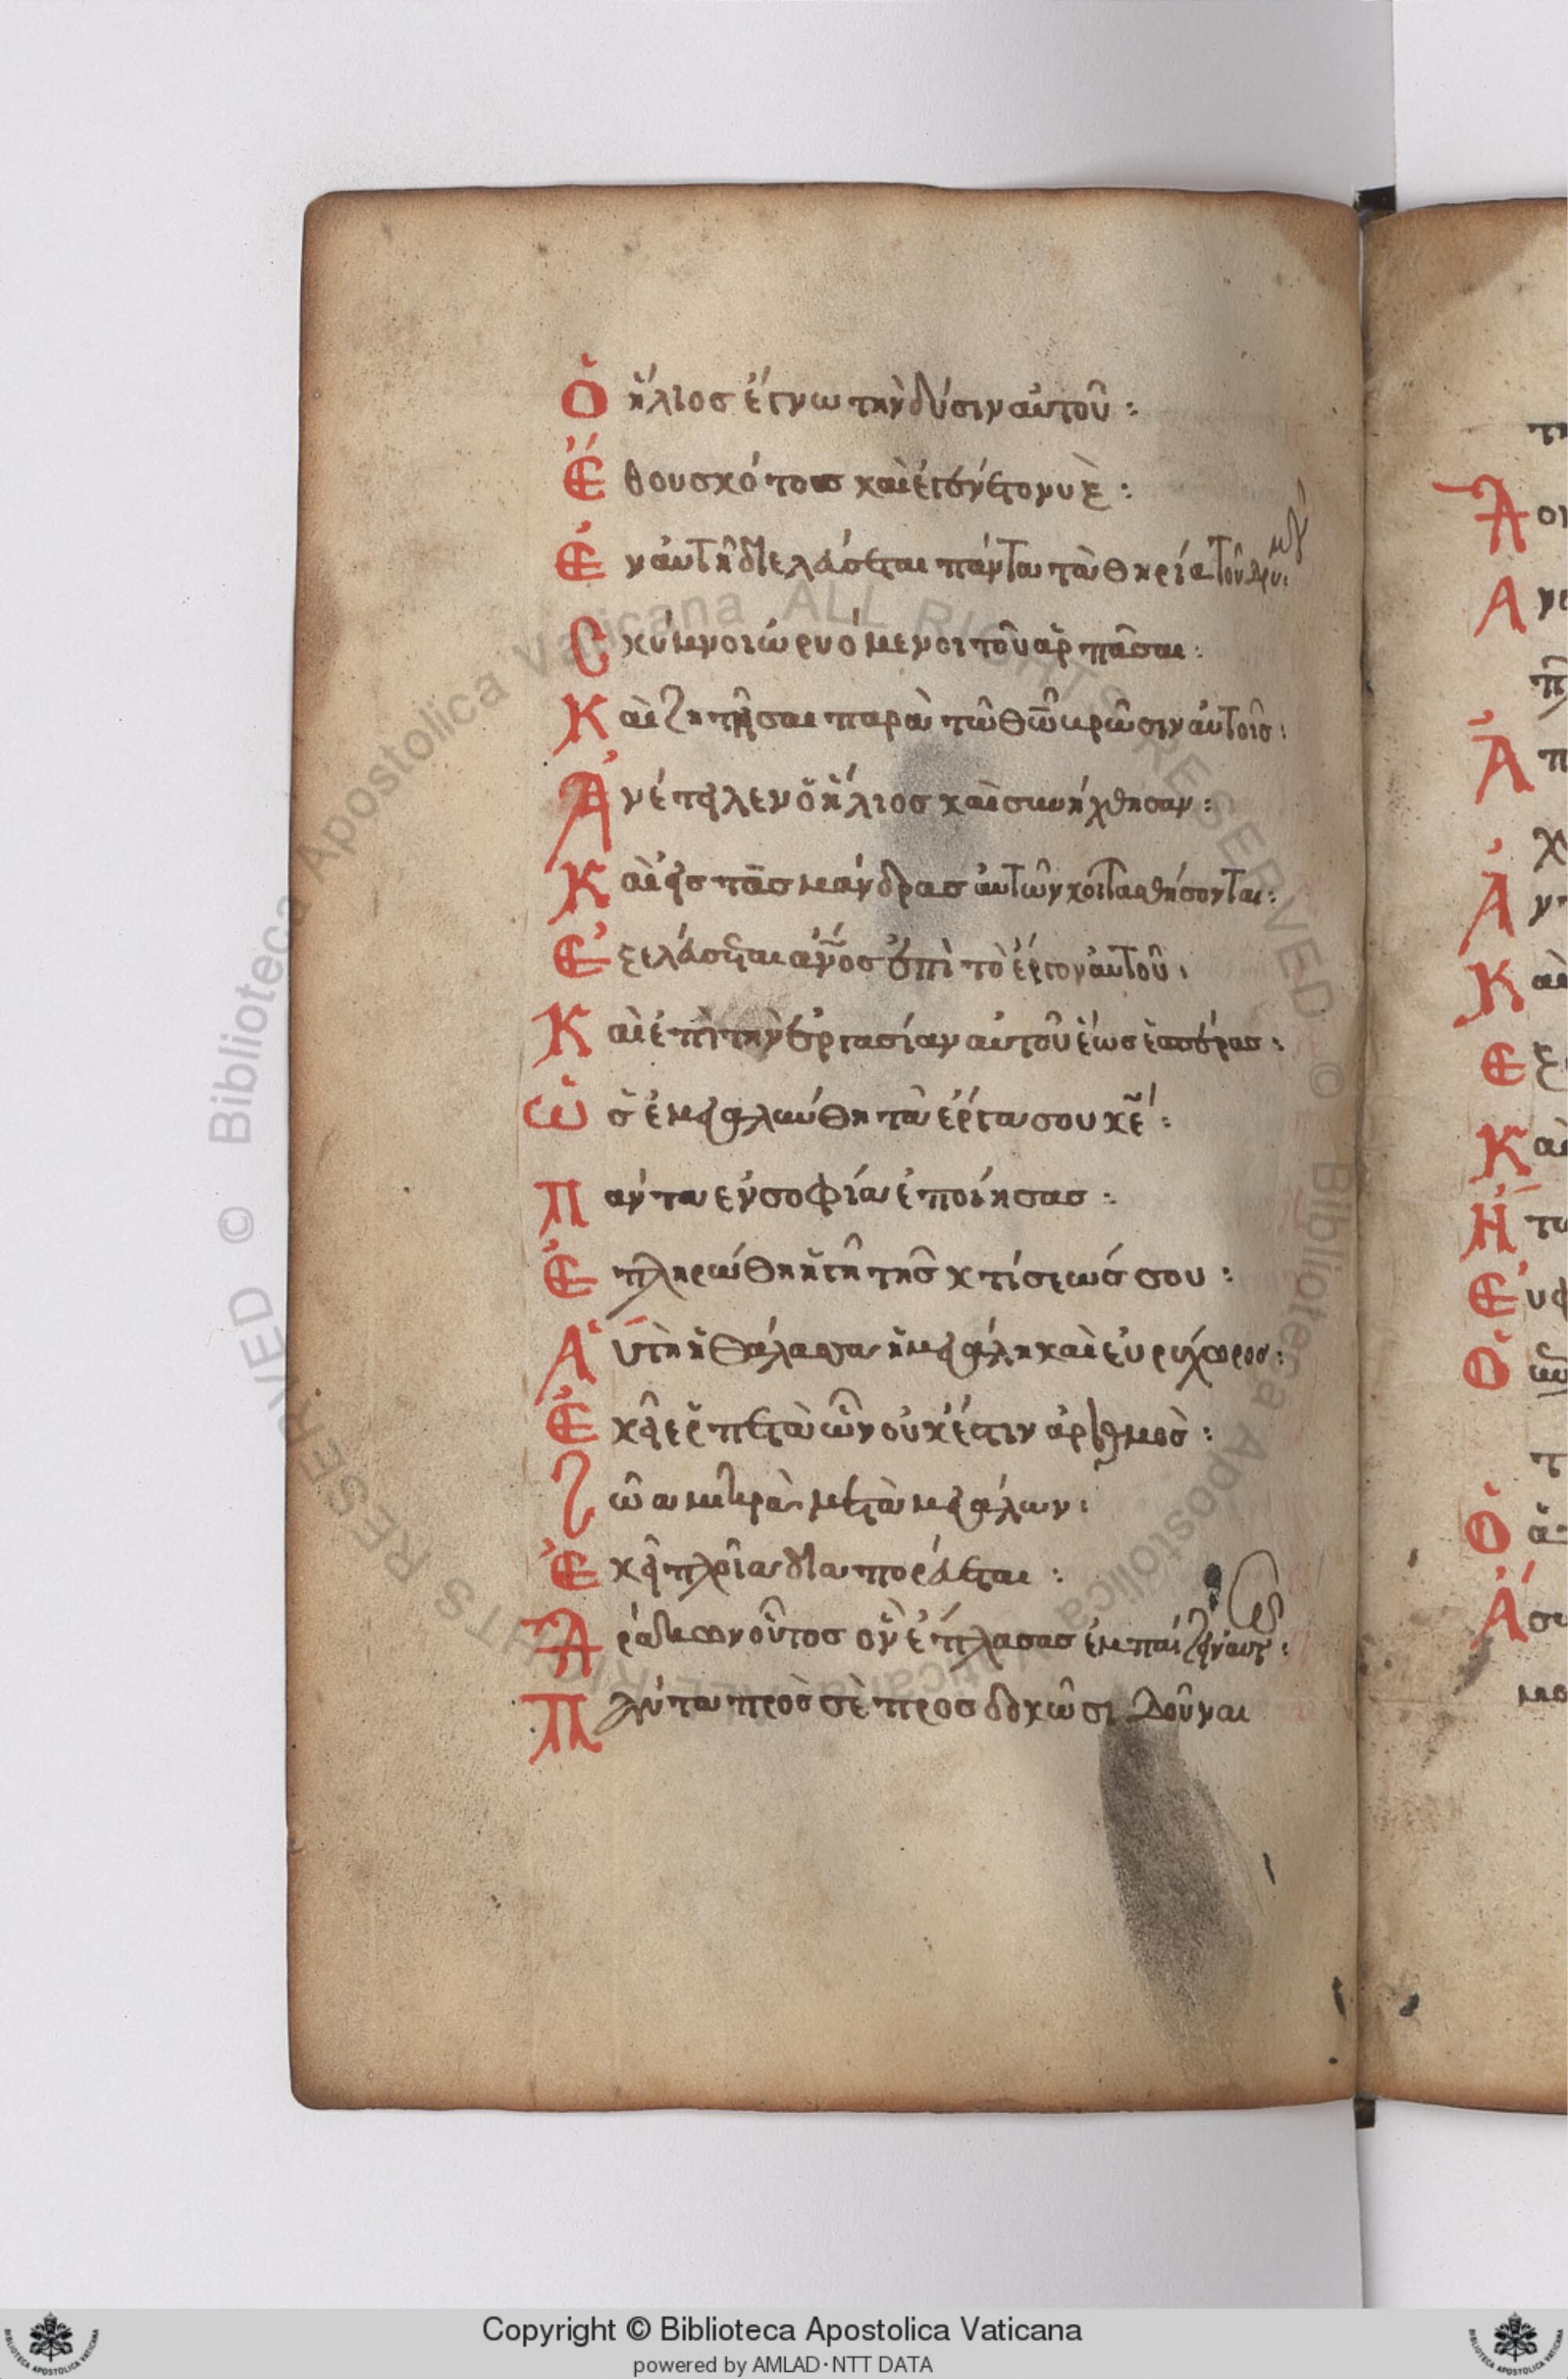 Ὁ ἥλιοσ ἔγνω τὴν δύσιν αὐτοῦ :
Ἔθου σκότοσ καὶ ἐγένετο νύξ :
Ἐν αὐτῆ διελεύσεται πάντα τὰ θηρία τοῦ δρυμοῦ :
Σκύμνοι ὠρυόμενοι τοῦ ἁρπᾶσαι :
Καὶ ζητῆσαι παρὰ τῶ θῶ βρῶσιν αὐτοῖσ :
Ἀνέτειλεν ὁ ἥλιοσ καὶ συνήχθησαν :
Καὶ εἰσ τὰσ μάνδρασ αὐτῶν κοιτασθήσονται :
Ἐξελεύσεται ἄνοσ ἐπὶ τὸ ἔργον αὐτοῦ :
Καὶ ἐπὶ τὴν ἐργασίαν αὐτοῦ ἕωσ ἑσπέρασ :
Ὡσ ἐμεγαλύνθη τὰ ἔργα σου κε :
Πάντα ἐν σοφία ἐποίησασ :
Ἐπληρώθη ἡ γῆ τῆσ κτίσεώσ σου :
Αὕτη ἡ θάλασσα ἡ μεγάλη καὶ εὐρύχωροσ :
Ἐκεῖ ἑρπετὰ ὧν οὐκ ἔστιν ἀριθμὸσ :
Ζῶα μικρὰ μετὰ μεγάλων :
Ἐκεῖ πλοῖα διαπορεύεται :
Δράκων οὗτοσ ὃν ἔπλασασ ἐμπαίζειν αὐτ :
Πάντα πρὸσ σὲ προσδοκῶσι δοῦναι
τ
Α οι
Α νο
π
Ἀ π
χ
Ἀ ν
Κ αὶ
Ε ξ
Κ αὶ
Ἡ τω
Ε ὐφ
Ὁ
τ
Ὁ
Ἄ σ
μο
Copyright © Biblioteca Apostolica Vaticana
powered by AMLAD·NTT DATA